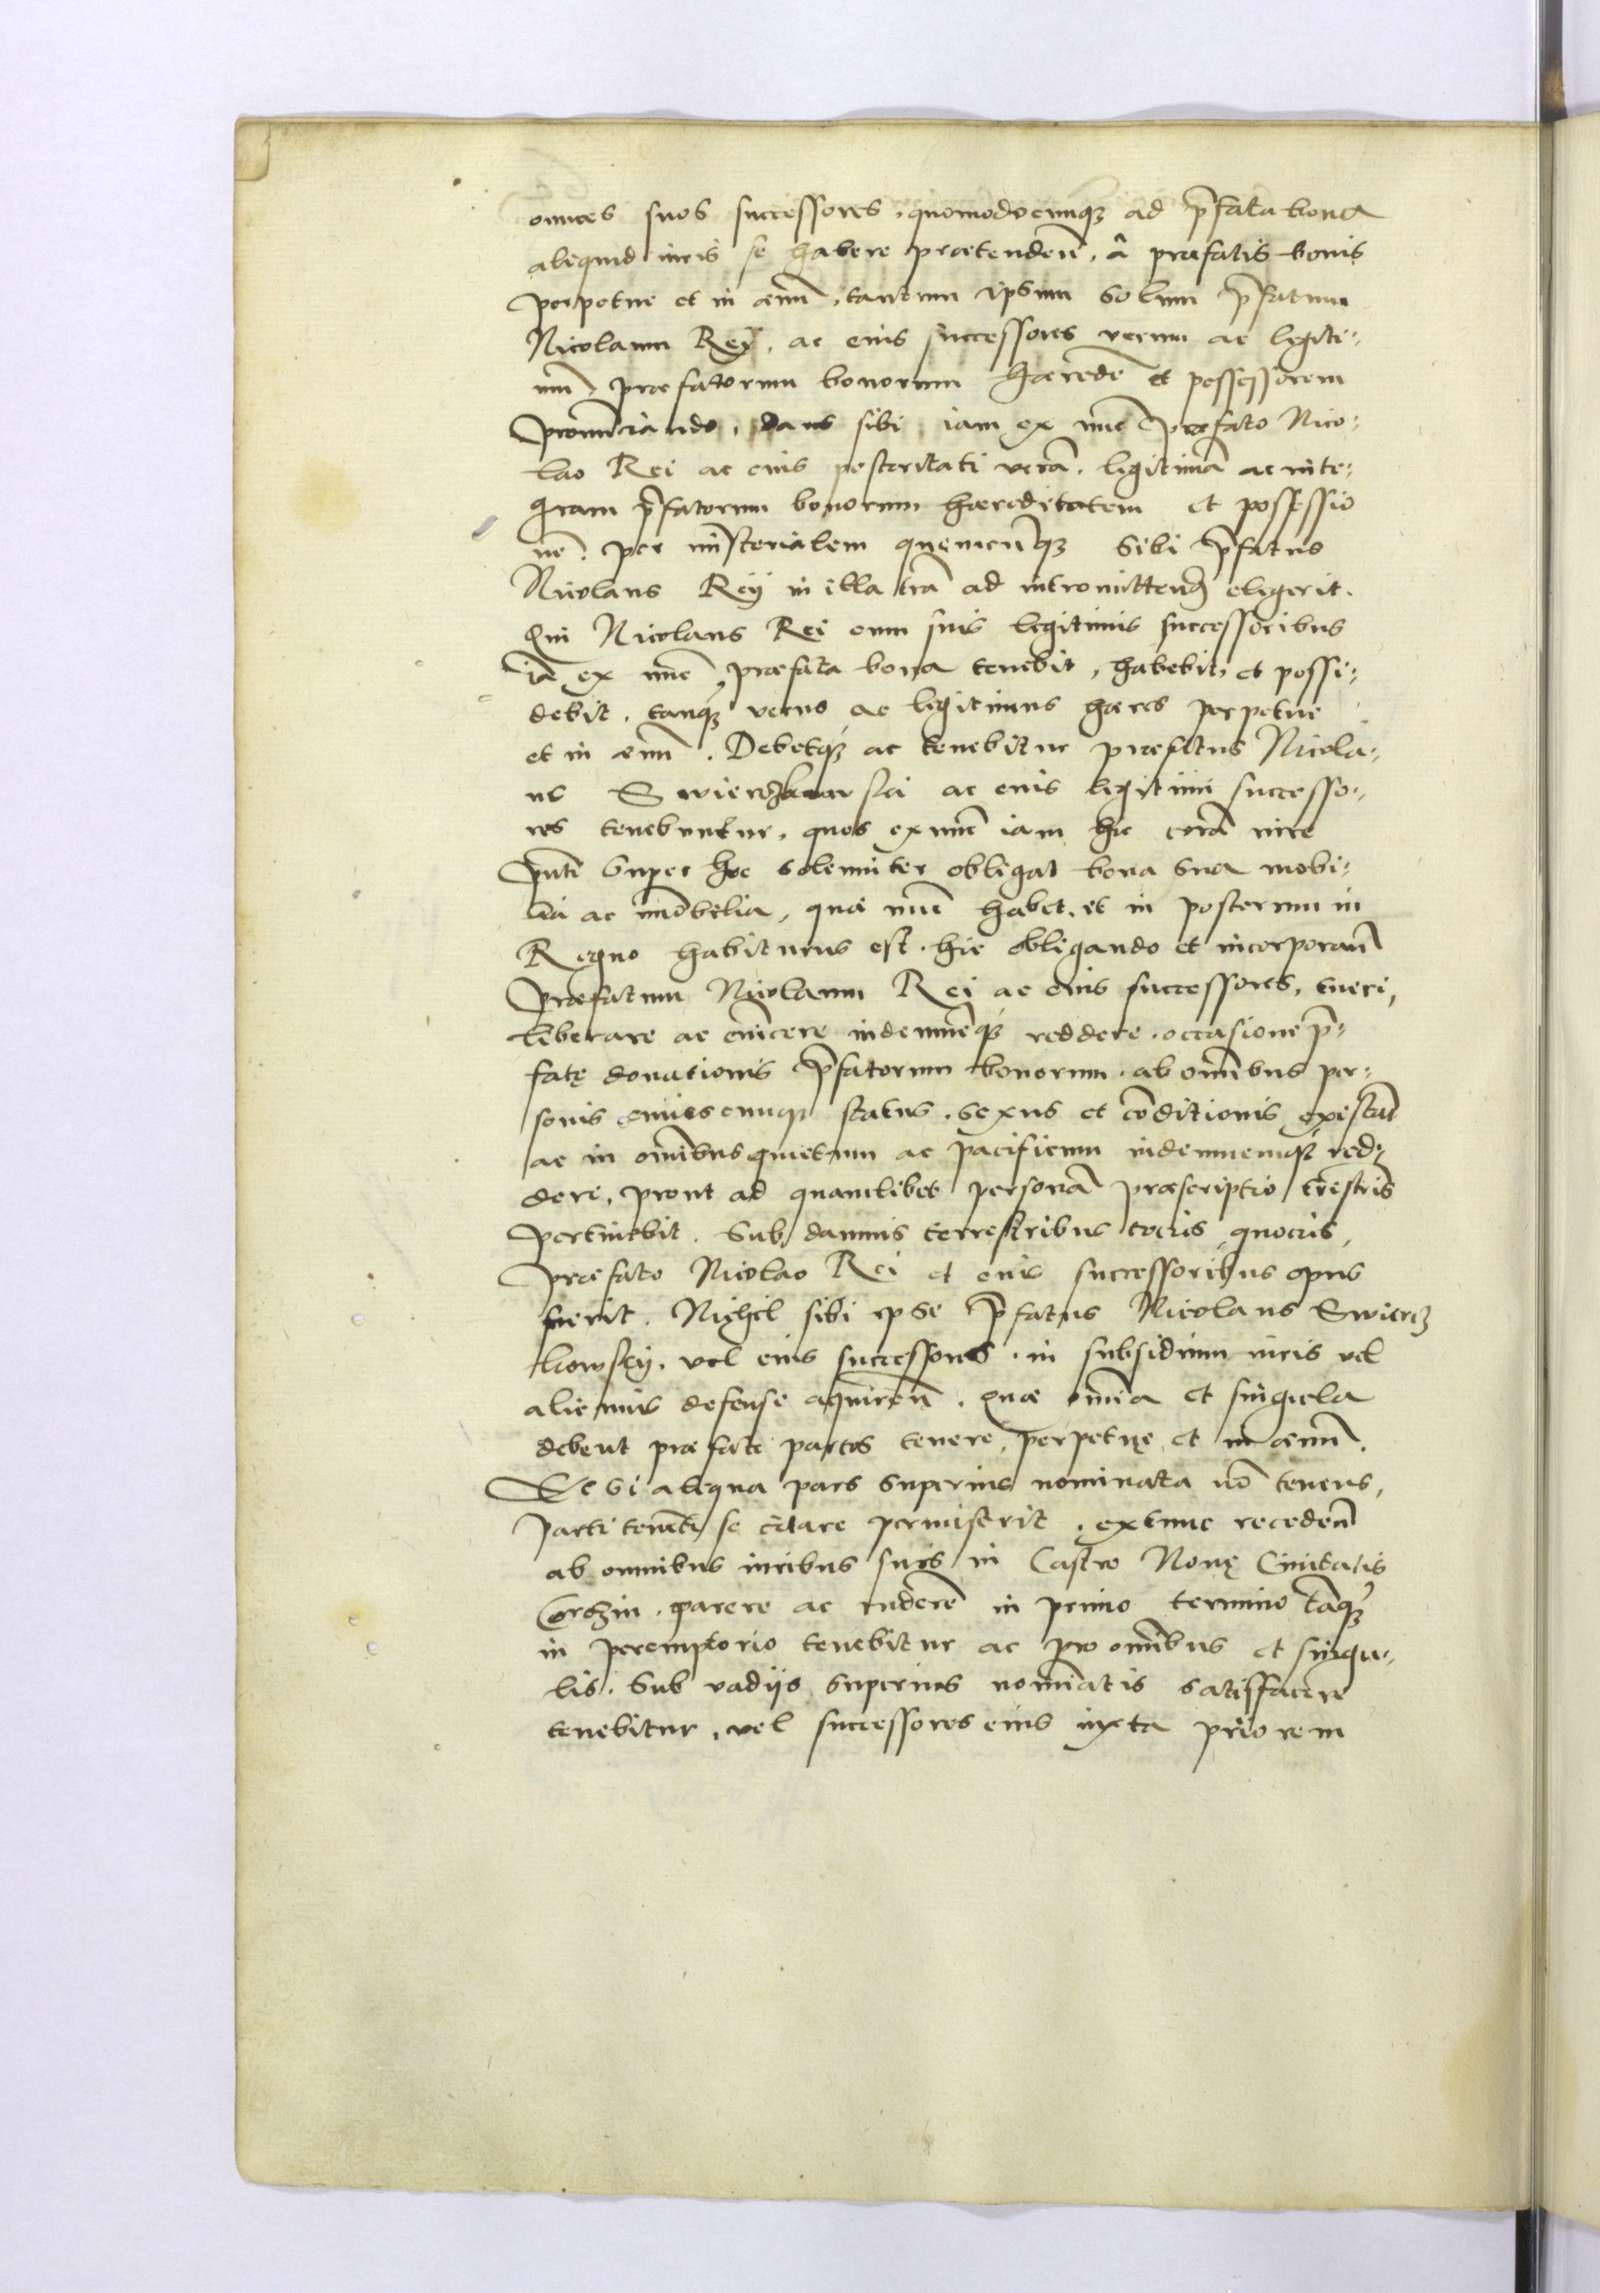 omnes suos successores, quomodocunq3 ad p̄fata bona
aliquid iuris se habere prætendeñ, â præfatis bonis
perpetue et in æuū, tantum ipsum solum p̄fatum
Nicolaum Reÿ, ac eius successores verum ac legiti⸗
mū præfatorum bonorum hæredē et possessorem
pronunciando, dans sibi iam ex nūc præfato Nico⸗
lao Rei ac eius posteritati verā, legitimā ac inte⸗
gram p̄fatorum bonorum hæreditatem et possessio
nē. per mīsterialem quemcūq3 sibi p̄fatus
Nicolaus Reÿ in illa trā ad intromittend eligerit.
Qui Nicolaus Rei cum suis legitimis successoribus
iā ex nūc præfata bona tenebit, habebit, et possi⸗
debit, tanq3 verus ac legitimus hæres perpetue
et in æuū. Debetq3 ac tenebitur præfatus Nicola⸗
us Swierczkowski ac eius legitimi successo⸗
res tenebuntur, quos ex nūc iam hic corā iure
p̄nti super hoc solenniter obligat bona sua mobi⸗
lia ac imobilia, quæ nūc habet, et in posterum in
Regno habiturus est, hic obligando et incorporañ
præfatum Nicolaum Rei ac eius successores, tueri,
liberare ac euīcere indemnēq3 reddere, occasione p̄⸗
fatę donationis p̄fatorum bonorum, ab omībus per⸗
sonis cuiuscunq3 status, sexus et cōditionis existeñ
ac in omībus quietum ac pacificum indemnemq3 red⸗
dere, prout ad quamlibet personā præscriptio trēstris
pertinebit. Sub damnis terrestribus tocies, quocies,
præfato Nicolao Rei et eius successoribus opus
fuerit. Nichil sibi ipse p̄fatus Nicolaus Swiercz
kowskÿ, vel eius successores, in subsidium iuris vel
alicuius defense aquireñ. Quæ omīa et singula
debent præfate partes tenere, perpetuę et in æuū.
Et si aliqua pars superius nominata nō tenens,
parti tenēti se citare permiserit, extunc recedeñ
ab omnibus iuribus suis in Castro Nonę Ciuitatis
Corczin, parere ac rndere in primo termino tāq3
in peremptorio tenebitur ac pro omībus et singu⸗
lis, sub vadijs superius nomīatis satisfacere
tenebitur, vel successores eius iuxta priorem